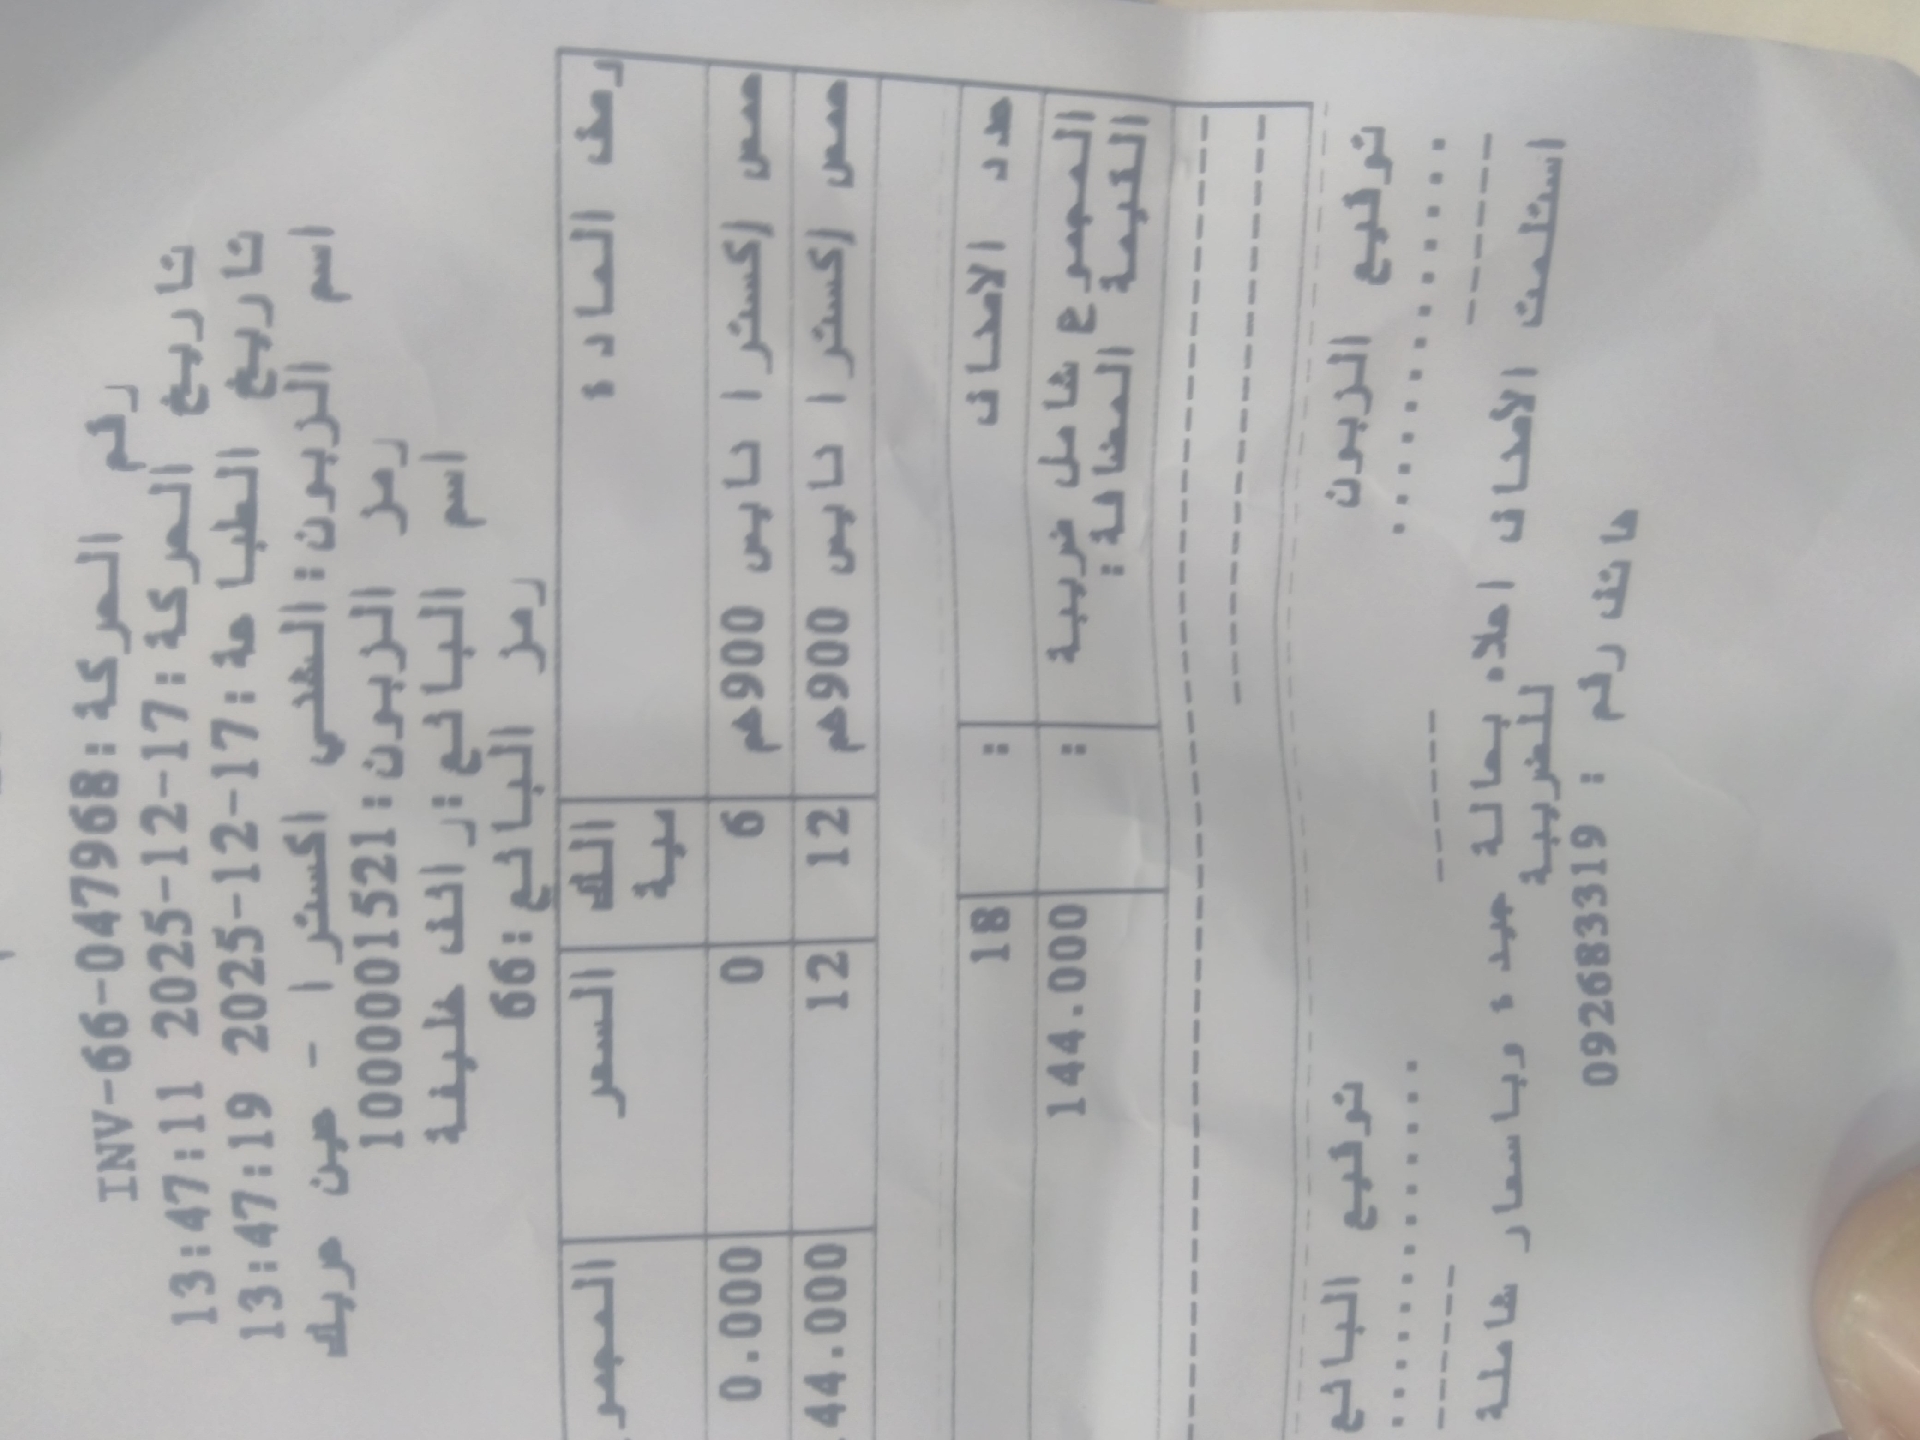 رقم الحركة: INV-66-047968
تاريخ الحركة: 2025-12-17 13:47:11
تاريخ الطباعة: 2025-12-17 13:47:19
اسم الزبون: اكسترا - عين عربك
رمز الزبون: 1000001521
اسم البائع: رائف خليفة
رمز البائع: 66
وصف المادة الكمية السعر المجمو
حمص اكسترا دايس 900جم 6 0 0.000
حمص اكسترا دايس 900جم 12 12 44.000
عدد الاصناف : 18
المجموع شامل ضريبة القيمة المضافة: : 144.000
توقيع الزبون توقيع البائع
استلمت الاصناف اعلاه بحالة جيدة وباسعار شاملة للضريبة
هاتف رقم : 092683319